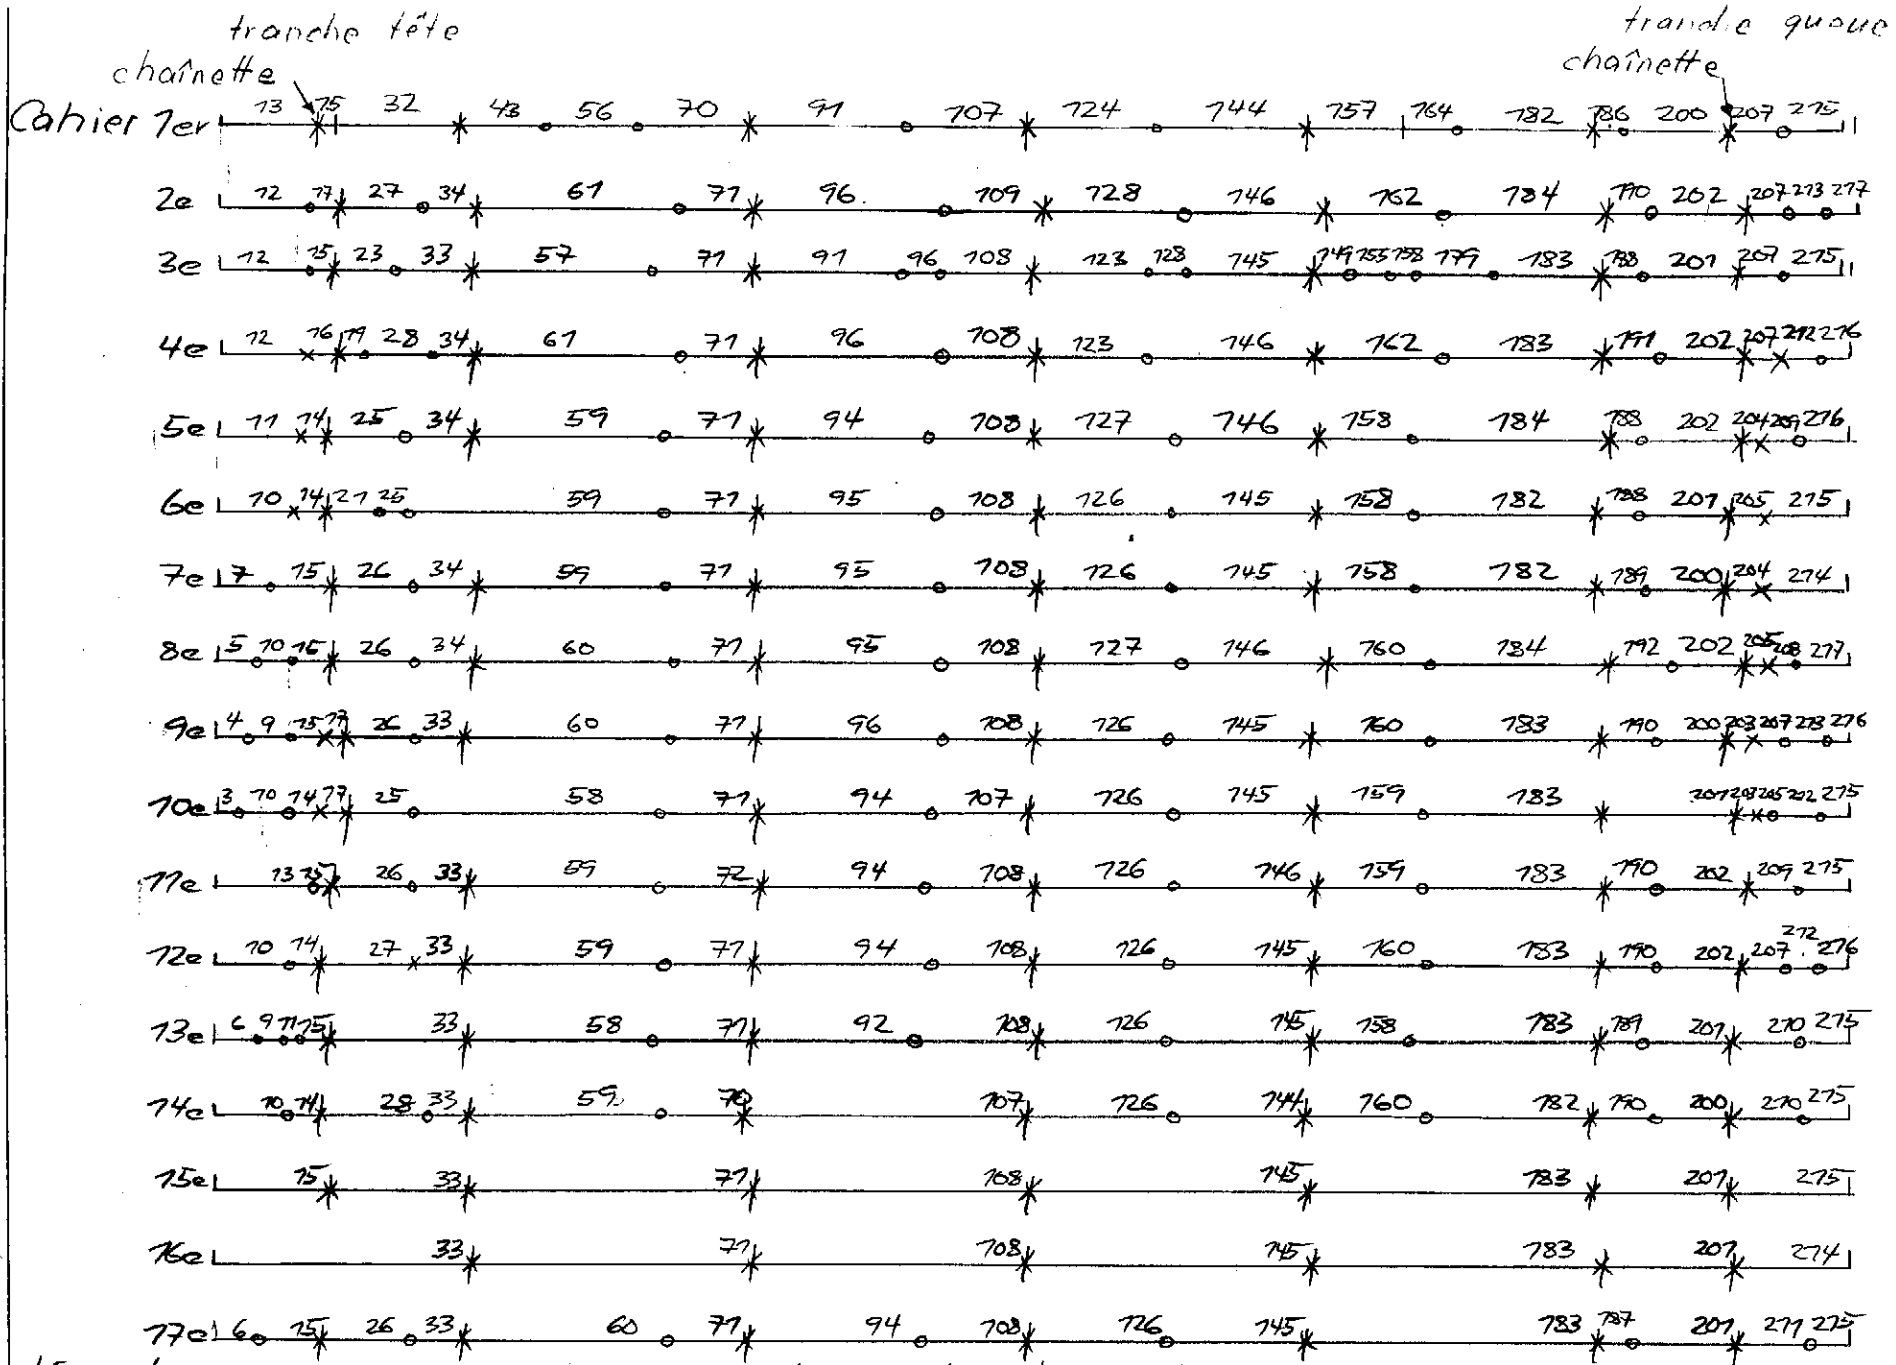 tranche tête
chaînette
tranche queue
chaînette
Cahier 1er 13 15 32 43 56 70 91 107 124 144 157 164 182 186 200 207 215
2e 12 17 27 34 61 71 96 109 128 146 162 184 190 202 207 213 217
3e 12 15 23 33 57 71 91 96 108 123 128 145 149 155 158 179 183 188 201 207 215
4e 12 16 19 28 34 61 71 96 108 123 146 162 183 191 202 207 212 216
5e 11 14 25 34 59 71 94 108 127 146 158 184 188 202 204 209 216
6e 10 14 21 25 59 71 95 108 126 145 158 182 188 201 205 215
7e 7 15 26 34 59 71 95 108 126 145 158 182 189 200 204 214
8e 5 10 15 26 34 60 71 95 108 127 146 160 184 192 202 205 208 217
9e 4 9 15 17 26 33 60 71 96 108 126 145 160 183 190 200 203 207 213 216
10e 3 10 14 17 25 58 71 94 107 126 145 159 183 201 203 205 212 215
11e 13 15 26 33 59 72 94 108 126 146 159 183 190 202 209 215
12e 10 14 27 33 59 71 94 108 126 145 160 183 190 202 207 212 216
13e 6 9 11 15 33 58 71 92 108 126 145 158 183 189 201 210 215
14e 10 14 28 33 59 70 107 126 144 160 182 190 200 210 215
15e 15 33 71 108 145 183 201 215
16e 33 71 108 145 183 201 214
17e 6 15 26 33 60 71 94 108 126 145 183 187 201 211 215